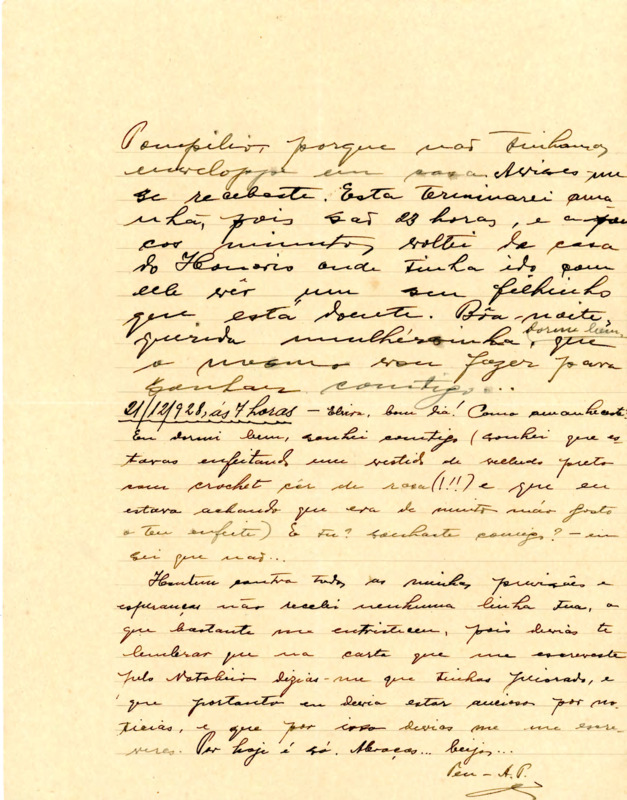 Pompilio, porque não tinhamos
enveloppe em casa. Avises-me
se recebeste. Esta terminarei ama
nhã, pois são 23 horas, e a pou
cos minutos voltei da casa
do Honorio onde tinha ido com
elle vêr um seu filhinho
que está doente. Bôa-noite,
querida mulhérsinha, dorme bem, que
o mesmo vou fazer para
sonhar comtigo...
21/12/928, ás 7 horas – Elvira, bom dia! Como amanheceste?
Eu dormi bem, sonhei comtigo (sonhei que es-
tavas enfeitando um vestido de velludo preto
com crochet côr de rosa (!!!) e que eu
estava achando que era de muito máo gosto
o teu enfeite) E tu? sonhaste comigo? – eu
sei que não...
Hontem contra todas as minhas previsões e
esperanças não recebi nenhuma linha tua, o
que bastante me entristeceu, pois devias te
lembrar que na carta que me escreveste
pelo Natalicio dizias-me que tinhas peiorado, e
que portanto eu devia estar ancioso por no-
ticias, e que por isso devias me escre-
veres. Por hoje é só. Abraços... beijos...
Teu – A.P.